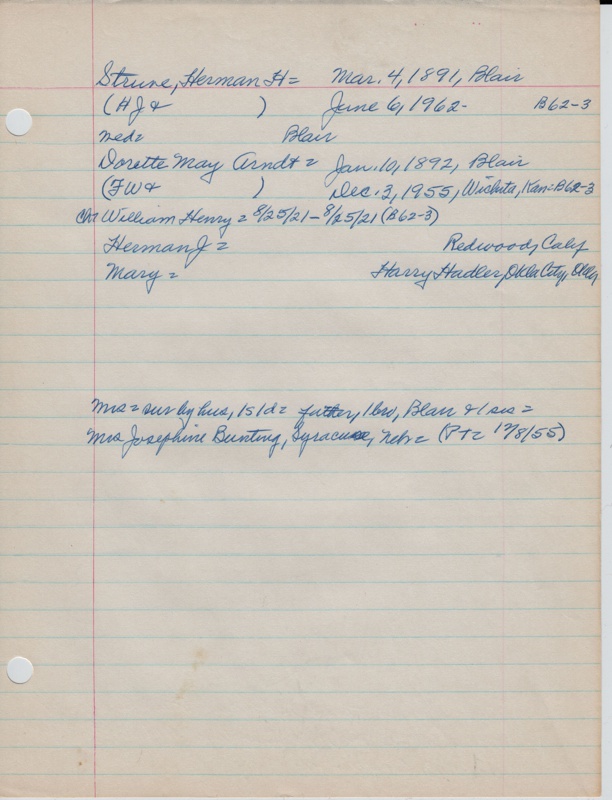 Struve, Herman H = Mar. 4, 1891, Blair
(HJ & ) June 6, 1962- B62-3
med= Blair
Dorette May Arndt = Jan. 10, 1892, Blair
(FW & ) Dec. 3, 1955, Wichita, Kan= B62-3
Ch William Henry = 8/25/21 - 8/25/21 (B62-3)
Herman J = Redwood, Calif
Mary = Harry Hadler, Okla City, Okla
Mrs = sur by hus, 1s 1d = father, 1bro, Blair & 1 sis =
Mrs Josephine Bunting, Syracuse, Nebr = (PT= 12/8/55)